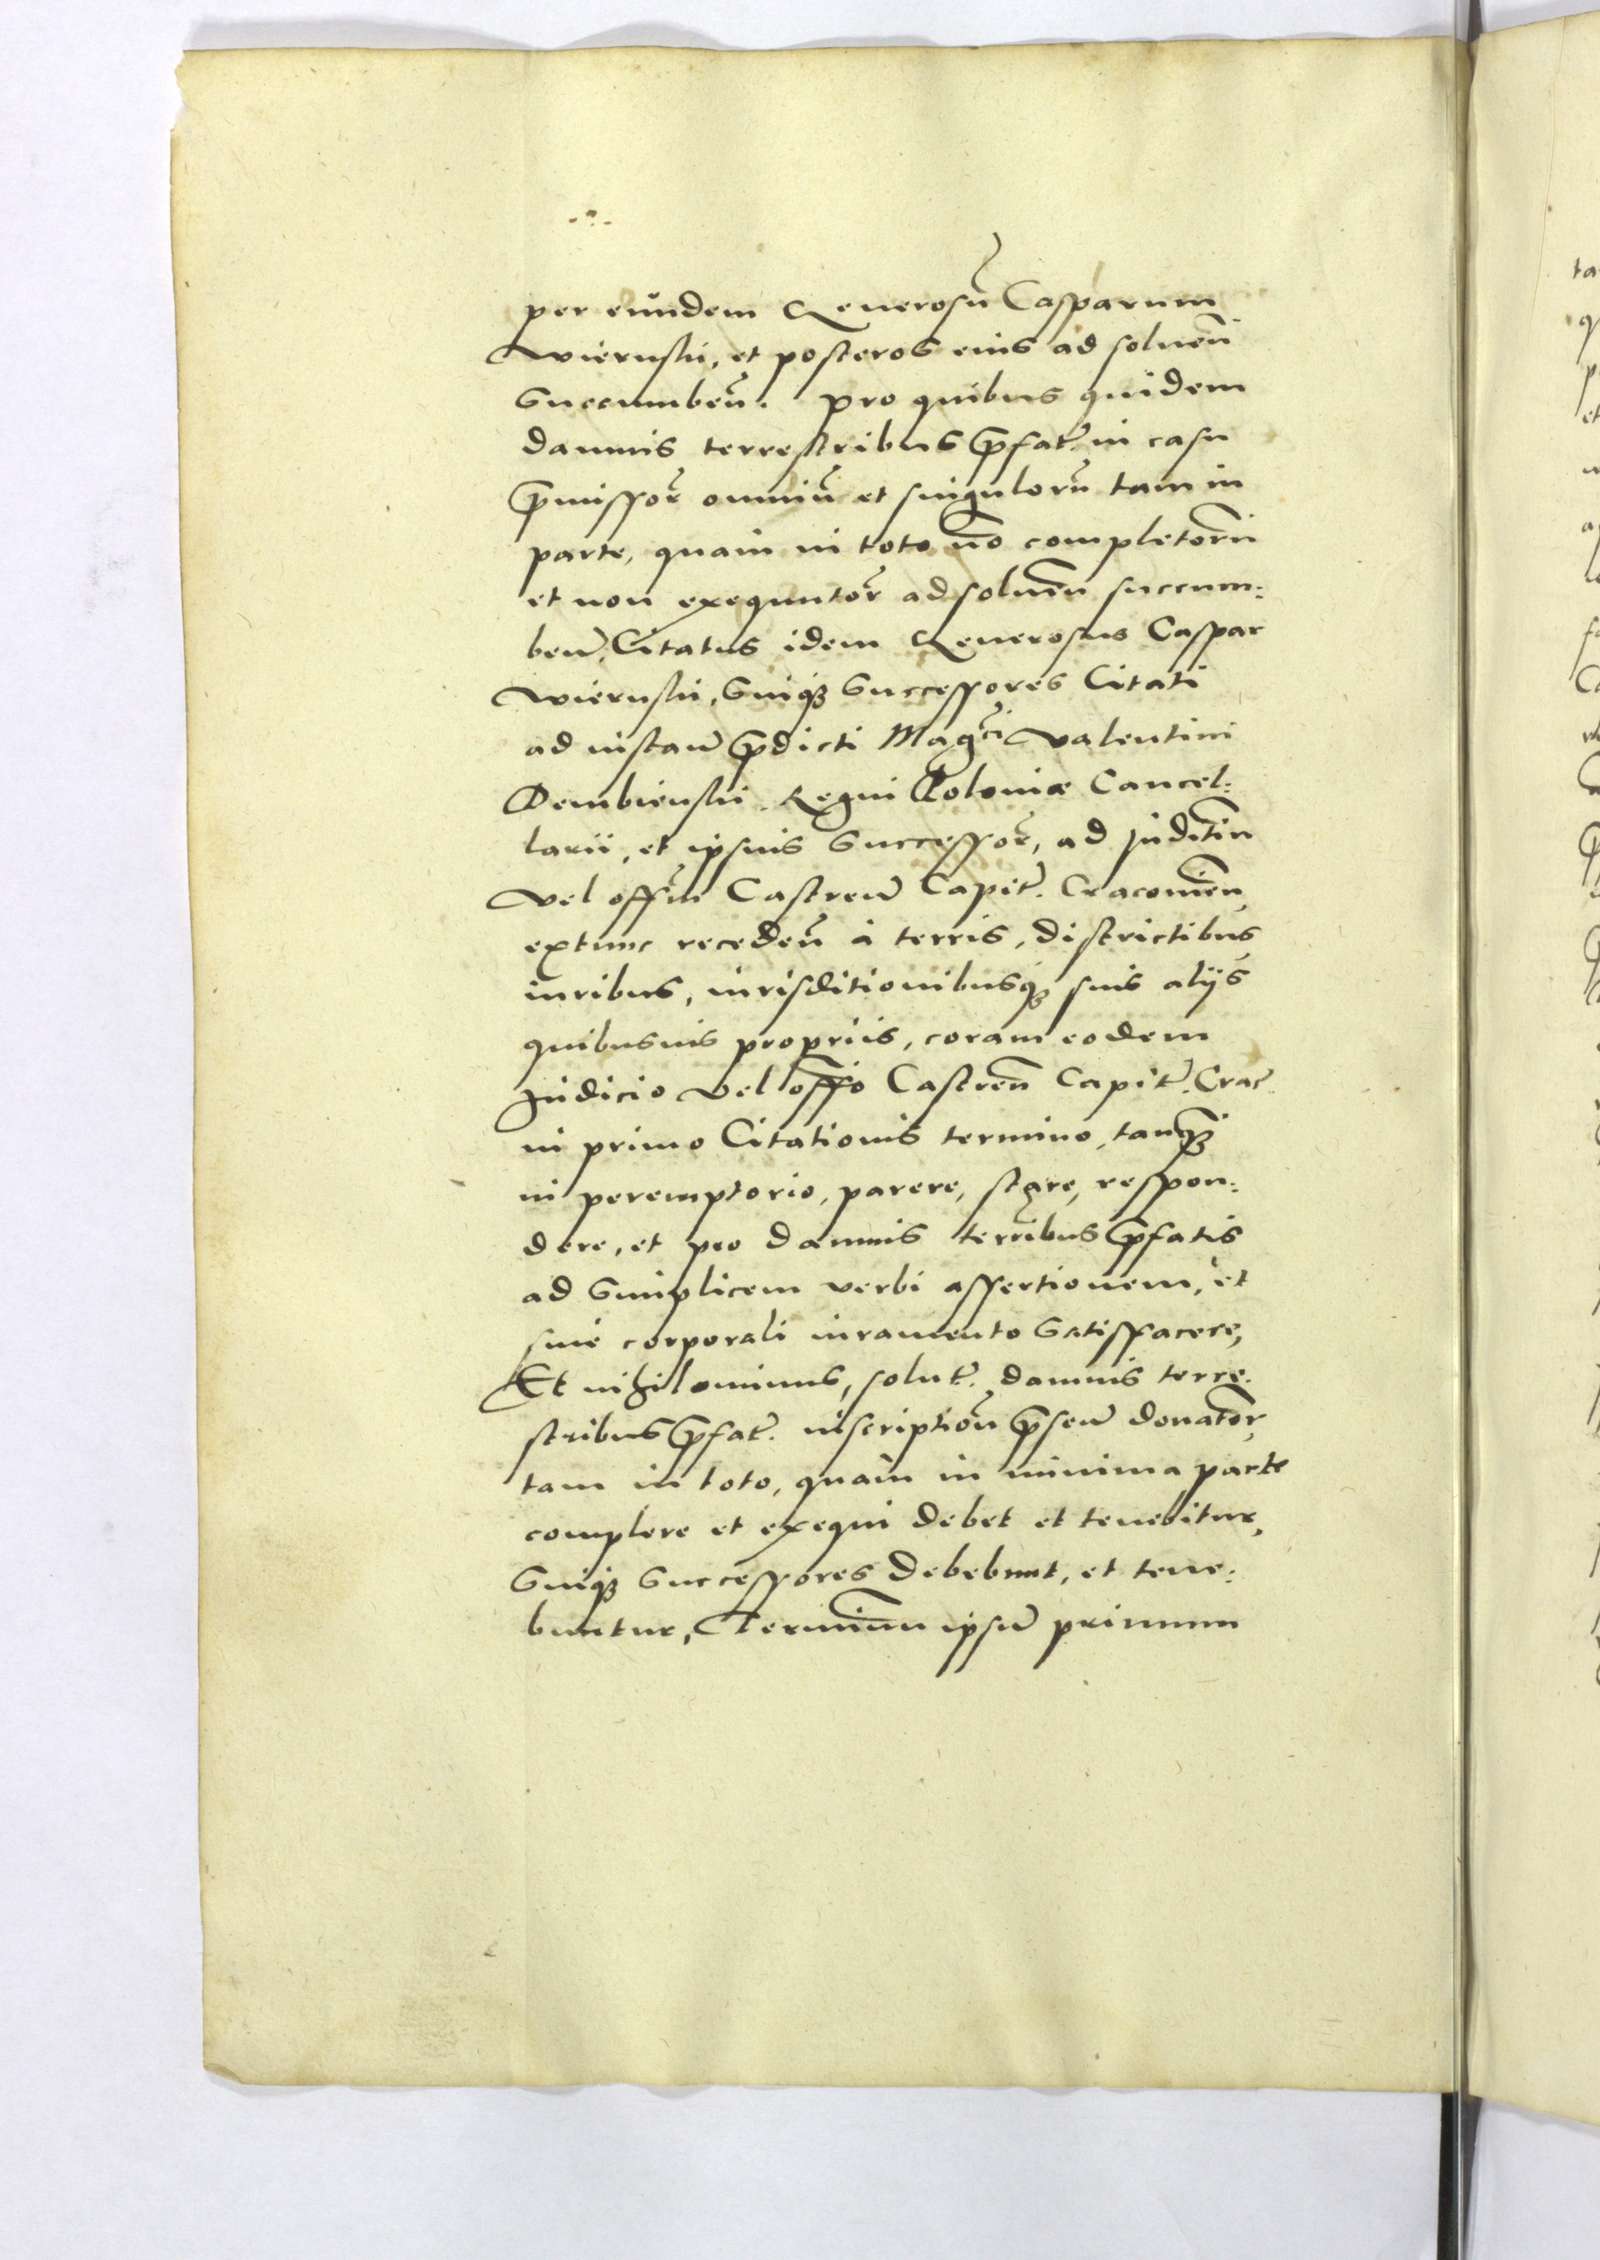 per eundem Generosũ Casparum
Wiernski, et posteros eius ad soluen̄
Succumben̄. Pro quibus quidem
damnis terrestribus p̄fat̄. in casu
p̄missor̄ omniū et singulorū tam in
parte, quam in toto nō completorū
et non exequutor̄ ad soluen̄ succum:
ben̄, Citatus idem Generosus Caspar
Wiernski, Suiq̨ Successores Citati
ad instan̄ p̄dicti Mag̃ci Valentini
Dembienski Regni Poloniæ Cancel:
larii, et ipsius Successor̄, ad Juditiū
Vel offm̄ Castren̄ Capit̄. Cracouien̄,
extunc receden̄ à terris, districtibus,
iuribus, iurisditionibusq̨ suis alijs
quibusuis propriis, coram eodem
Judicio Vel off̄o Castren̄ Capit̄. Crac̄.
in primo Citationis termino, tanq̨̃
in peremptorio, parere, stare, respon:
dere, et pro damnis terrībus p̄fatis
ad Simplicem verbi assertionem, et
sine corporali iuramento Satisfacere,
Et nihilominus, solut̄. damnis terre:
stribus p̄fat̄. inscriptiōn p̄sen̄ donator̄,
tam in toto, quam in minima parte
complere et exequi debet et tenebitur,
Suiq̨ Successores debebunt, et tene:
buntur, Terminū ipsū primum